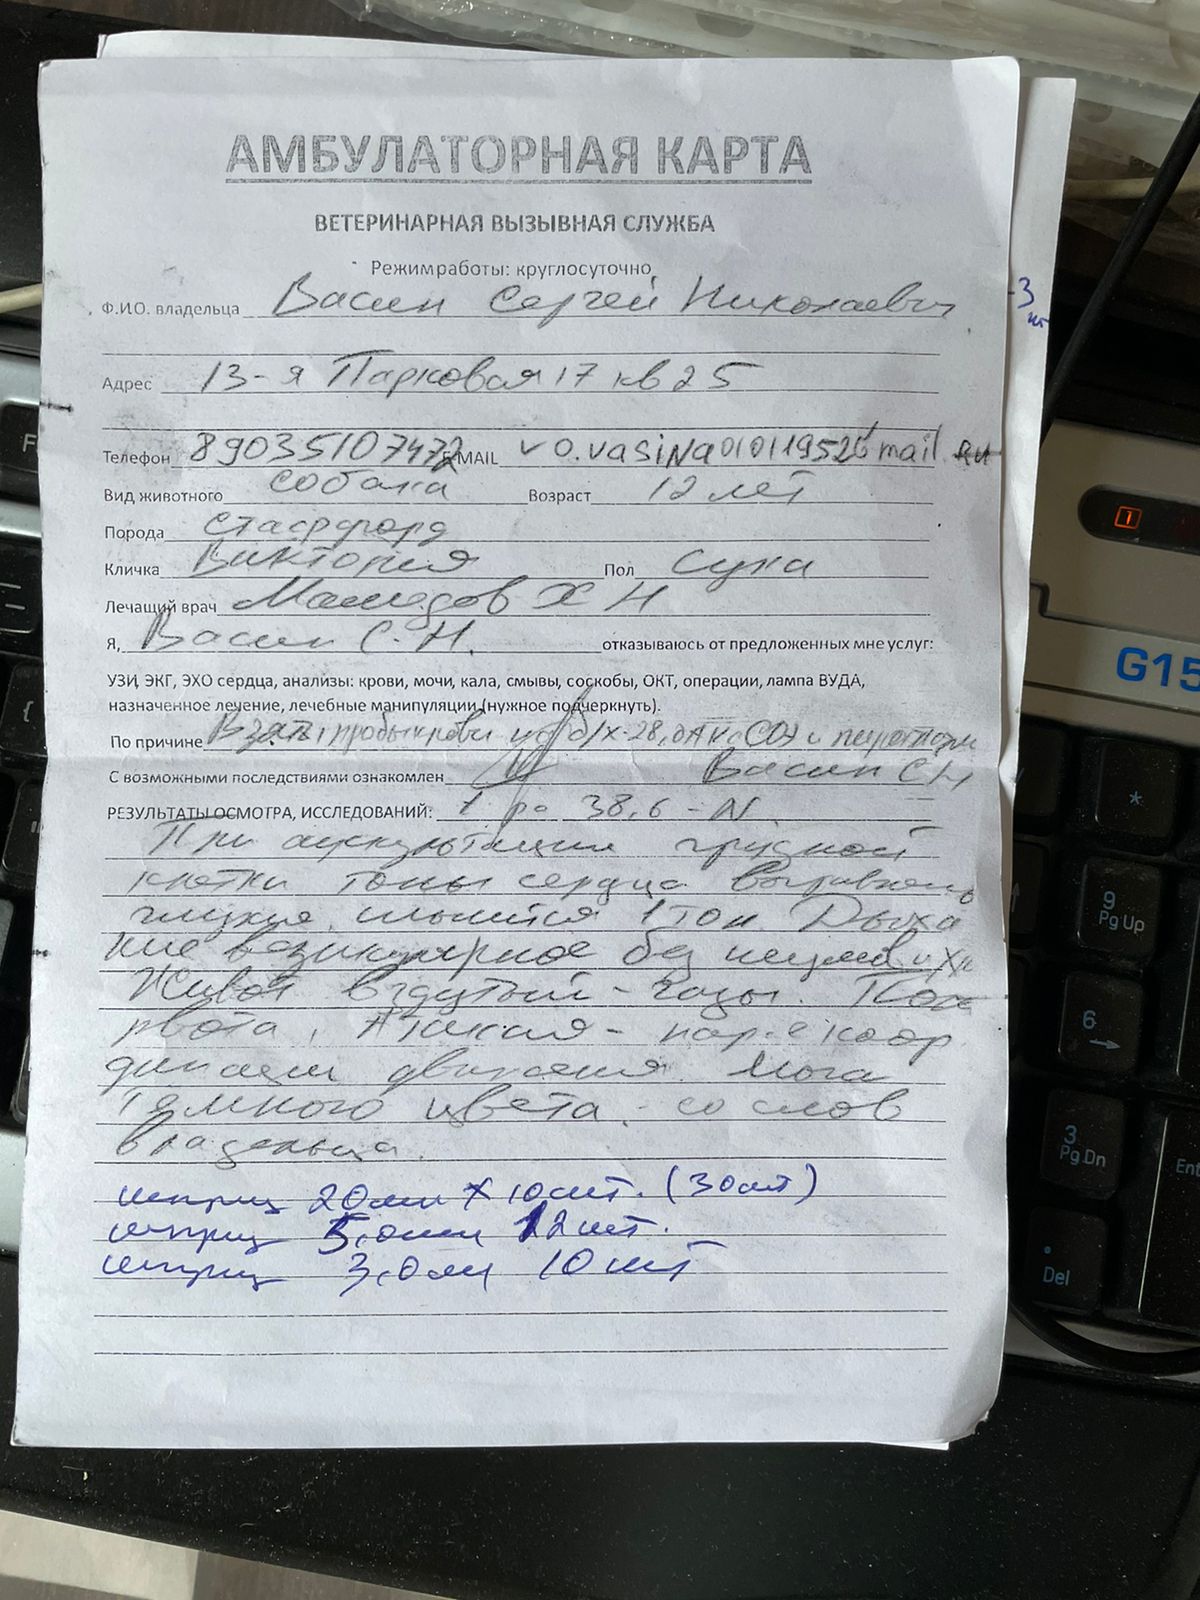 АМБУЛАТОРНАЯ КАРТА
ВЕТЕРИНАРНАЯ ВЫЗЫВНАЯ СЛУЖБА
Режим работы: круглосуточно
Ф.И.О. владельца Васин Сергей Николаевич
Адрес 13-я Парковая 17 кв 25
Телефон 89035107472 E-MAIL vo.vasina01011952@mail.ru
Вид животного собака Возраст 12 лет
Порода стаффорд
Кличка Виктория Пол Сука
Лечащий врач Мамедов Х Н
Я, Васин С. Н. отказываюсь от предложенных мне услуг:
УЗИ, ЭКГ, ЭХО сердца, анализы: крови, мочи, кала, смывы, соскобы, ОКТ, операции, лампа ВУДА,
назначенное лечение, лечебные манипуляции (нужное подчеркнуть).
По причине Взяты пробы крови на б/х-28, ОАК с СОЭ и
С возможными последствиями ознакомлен Васин СН
РЕЗУЛЬТАТЫ ОСМОТРА, ИССЛЕДОВАНИЙ: 38,6 - N
При аускультации грудной
клетки тоны сердца
глухие, слышится 1 тон. Дыха
ние везикулярное без шумов и
Живот вздутый - газы.
рвота. Атаксия - нар-е коор
динации движения. Моча
темного цвета - со слов
владельца.
шприц 20мл х 10шт. (30шт)
шприц 5,0мл 12шт.
шприц 3,0мл 10шт
-3
шт
G15
9
Pg Up
6
3
Pg Dn
Ent
Del
*